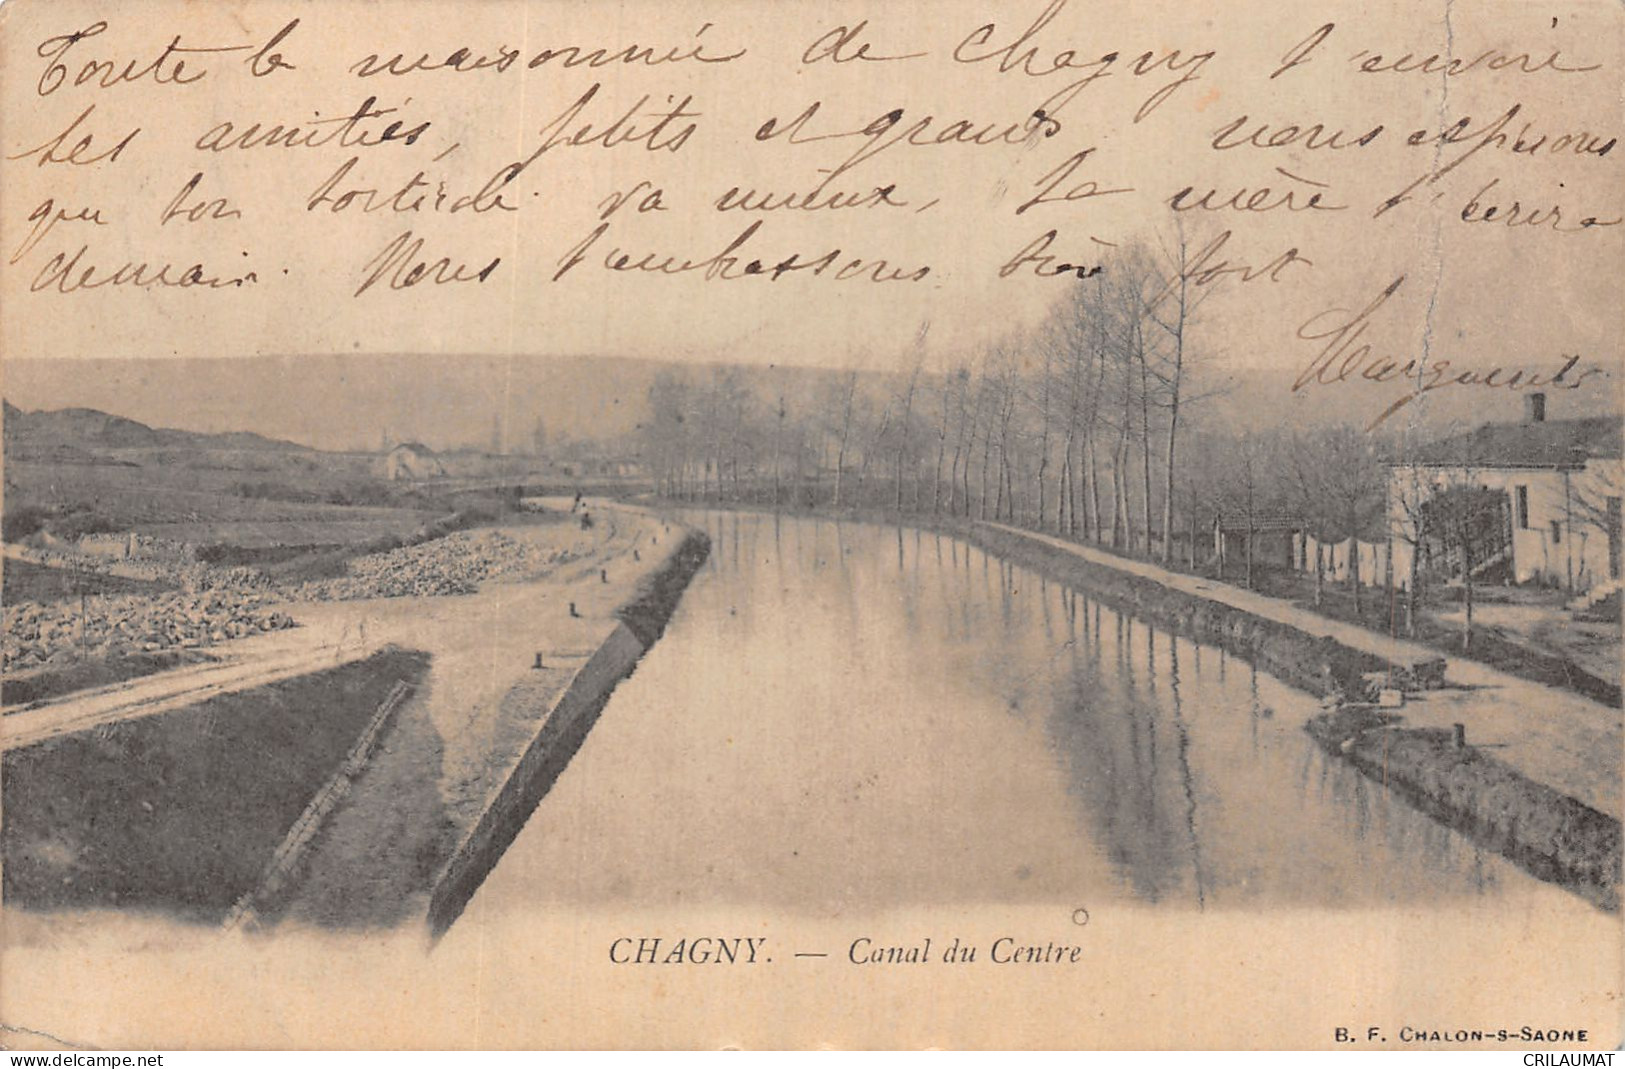 Toute la maisonnée de Chagny t'envoie
ses amitiés, petits et grands nous espérons
que ton torticolis va mieux, Ta mère t'écrira
demain. Nous t'embrassons bien fort
Marguerite
CHAGNY. — Canal du Centre
B. F. CHALON-S-SAONE
CRILAUMAT
https://www.delcampe.net